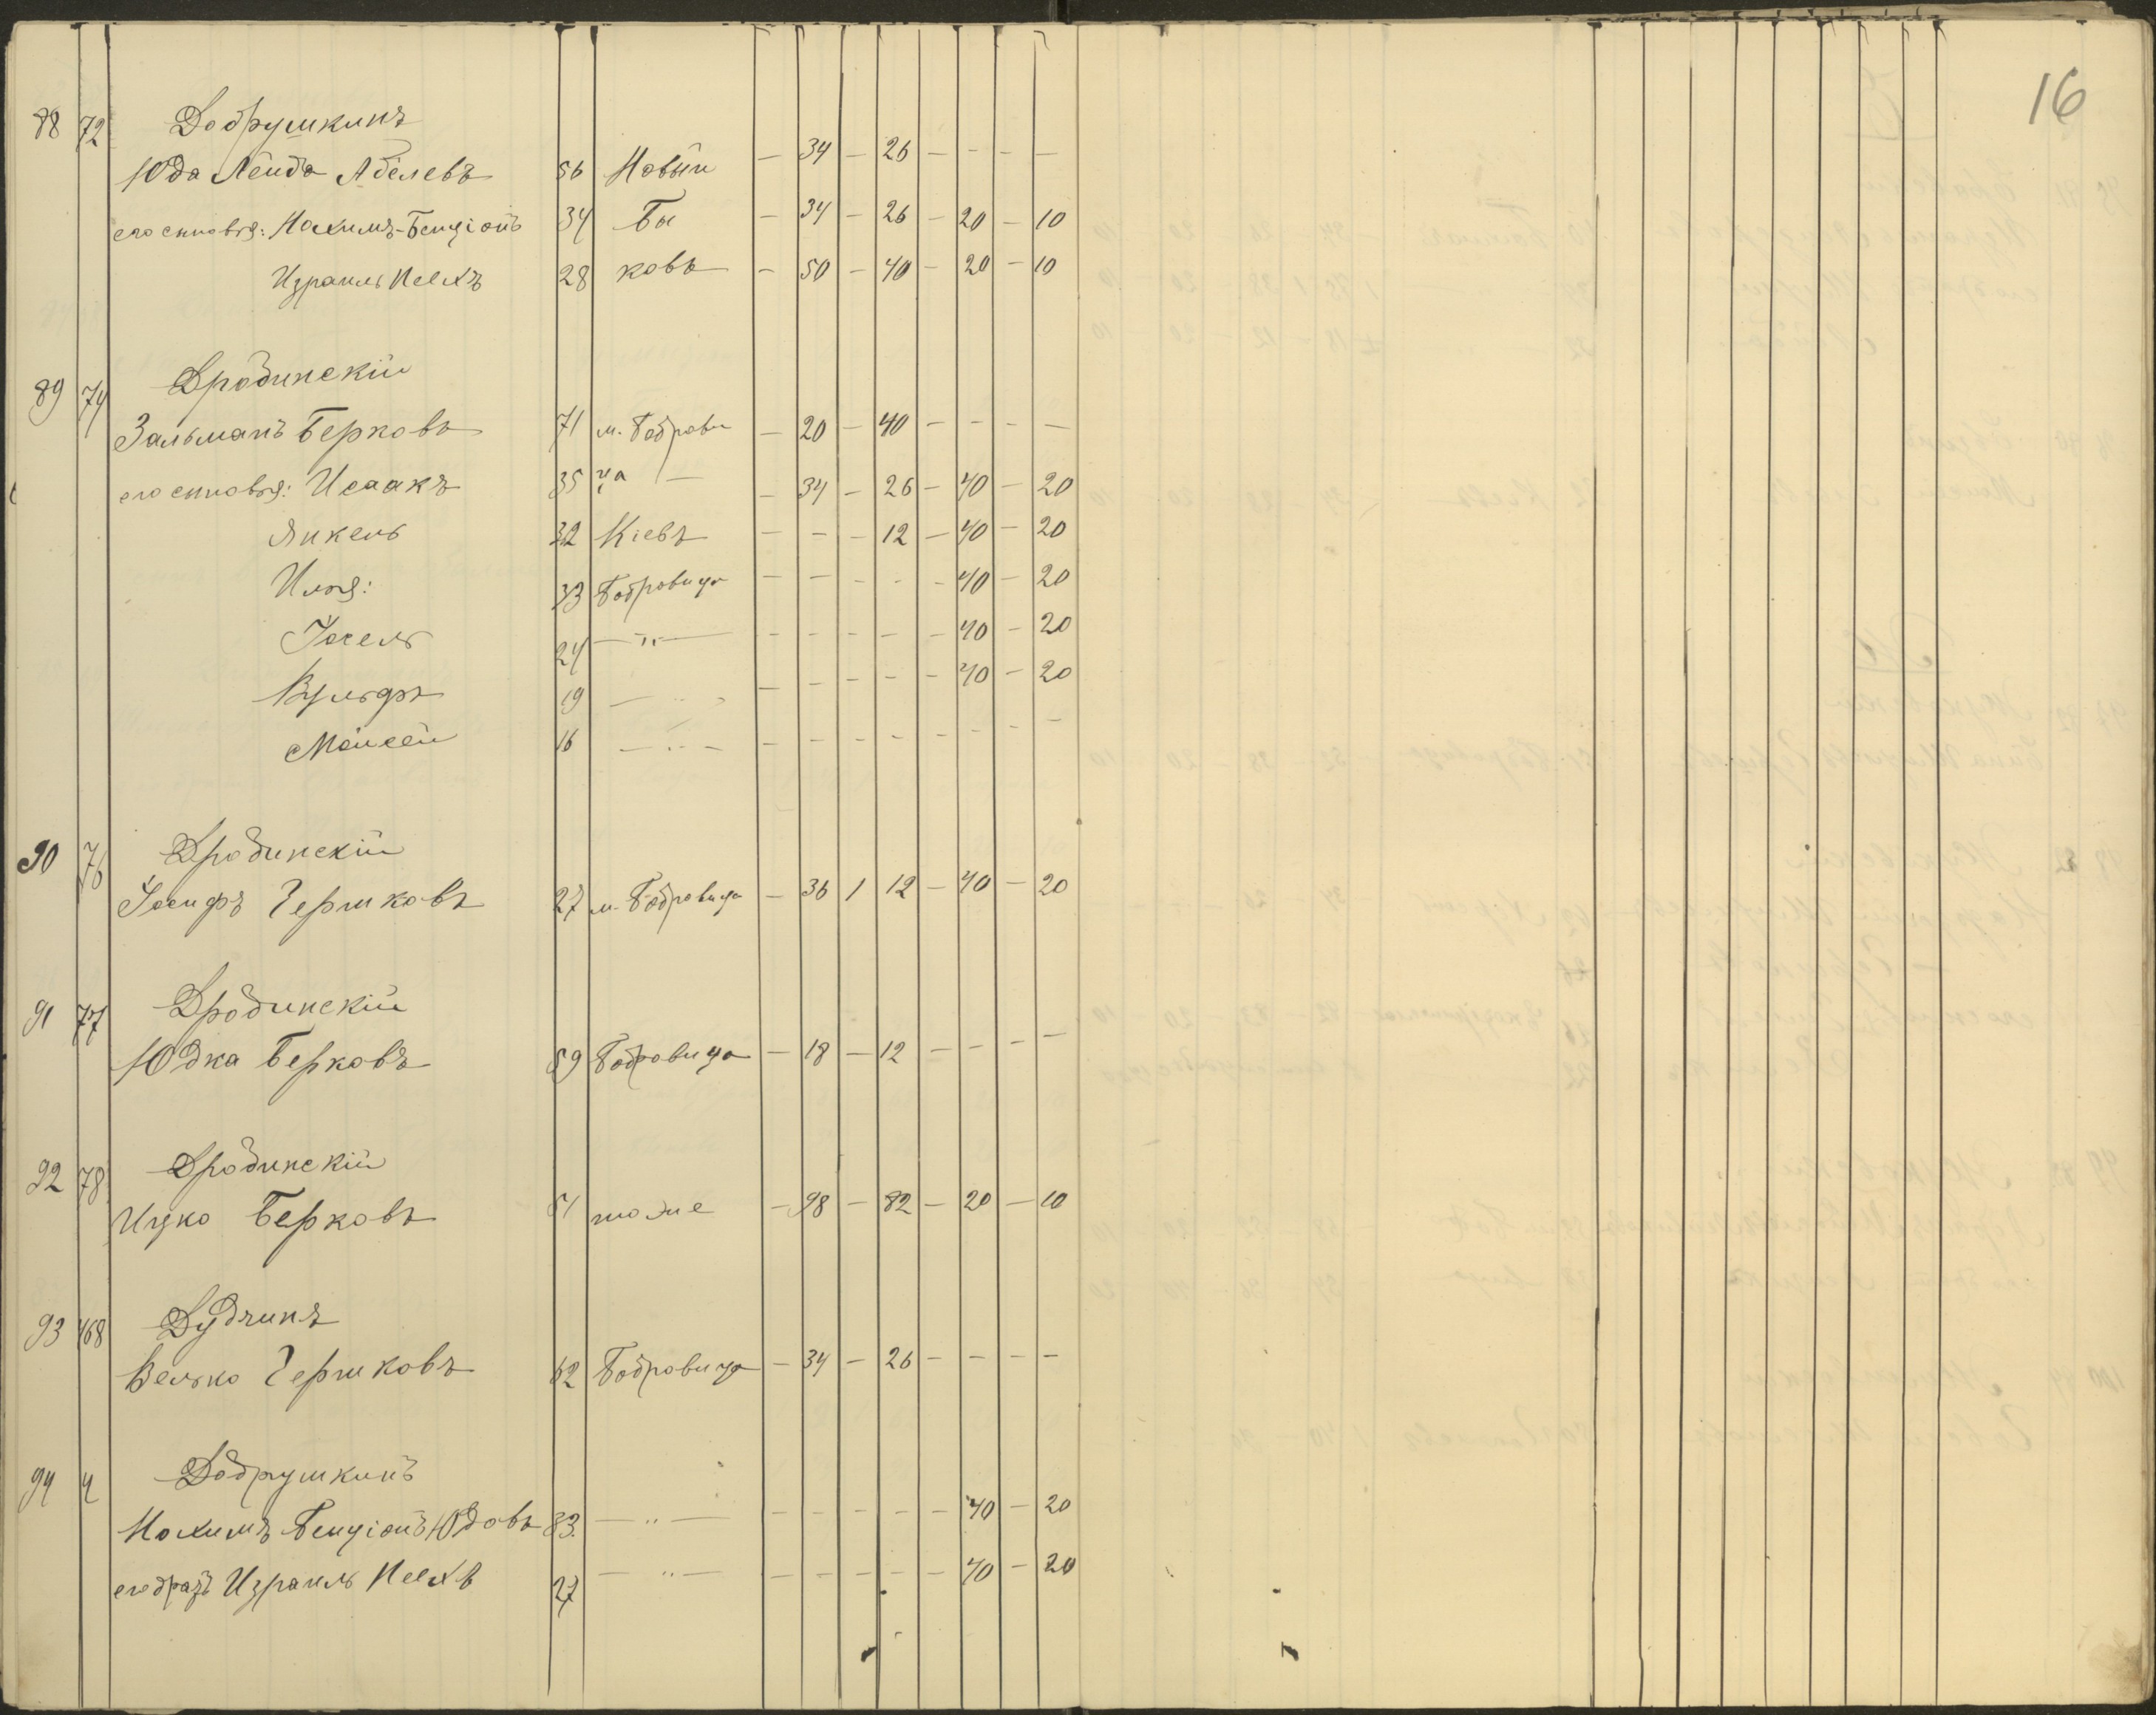 16
88 72 Добрушкинъ
Юда Лейба Абелевъ 56 Новый — 34 — 26 — — — —
его сыновья: Нахимъ-Бенціонъ 34 Бы — 34 — 26 — 20 — 10
Израиль Песахъ 28 ковъ — 50 — 40 — 20 — 10
89 74 Бродинскій
Зальманъ Берковъ 71 м. Боброви — 20 — 40 — — — —
его сыновья: Исаакъ 35 ца — — 34 — 26 — 40 — 20
Янкель 32 Кіевъ — — — 12 — 40 — 20
Илья: 33 Бобровица — — — — — 40 — 20
Іосель 24 — " — — — — — — 40 — 20
Вульфъ 19 — " — — — — — — 40 — 20
Мойсей 16 — " — — — — — — — — —
90 76 Дродинскій
Іосифъ Гершковъ 27 м. Бобровица — 36 1 12 — 40 — 20
91 77 Дродинскій
Юдка Берковъ 59 Бобровица — 18 — 12 — — — —
92 78 Дродинскій
Ицко Берковъ 51 тоже — 98 — 82 — 20 — 10
93 468 Дудчинъ
Велько Гершковъ 62 Бобровица — 34 — 26 — — — —
94 4 Добрушкинъ
Нохимъ Бенціонъ Юдовъ 33 — " — — — — — — 40 — 20
его братъ Израиль Песахъ 27 — " — — — — — — 40 — 20